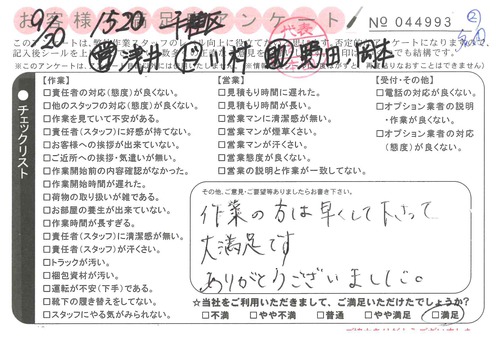 お客様満足アンケート
9/20 1520
№ 044993
②
【作業】
□責任者の対応(態度)が良くない。
□他のスタッフの対応(態度)が良くない。
□作業を見ていて不安がある。
□責任者(スタッフ)に好感が持てない。
□お客様への挨拶が出来ていない。
□ご近所への挨拶・気遣いが無い。
□作業開始前の内容確認がなかった。
□作業開始時間が遅れた。
□荷物の取り扱いが雑である。
□お部屋の養生が出来ていない。
□作業時間が長すぎる。
□責任者(スタッフ)に清潔感が無い。
□責任者(スタッフ)が汗くさい。
□トラックが汚い。
□梱包資材が汚い。
□運転が不安(下手)である。
□靴下の履き替えをしてない。
□スタッフにやる気がみられない。
チェックリスト
【営業】
□見積もりに遅れた。
□見積もり時間が長い。
□営業マンに清潔感が無い。
□営業マンが煙草くさい。
□営業マンが汗くさい。
□営業態度が良くない。
□営業の説明と作業が一致してない。
【受付・その他】
□電話の対応が良くない。
□オプション業者の説明・作業が良くない。
□オプション業者の対応(態度)が良くない。
その他、ご意見・ご要望等ありましたらお書き下さい。
作業の方は早くして下さって
大満足です
ありがとうございました。
☆当社をご利用いただきまして、ご満足いただけたでしょうか?
□不満 □やや不満 □普通 □やや満足 □満足